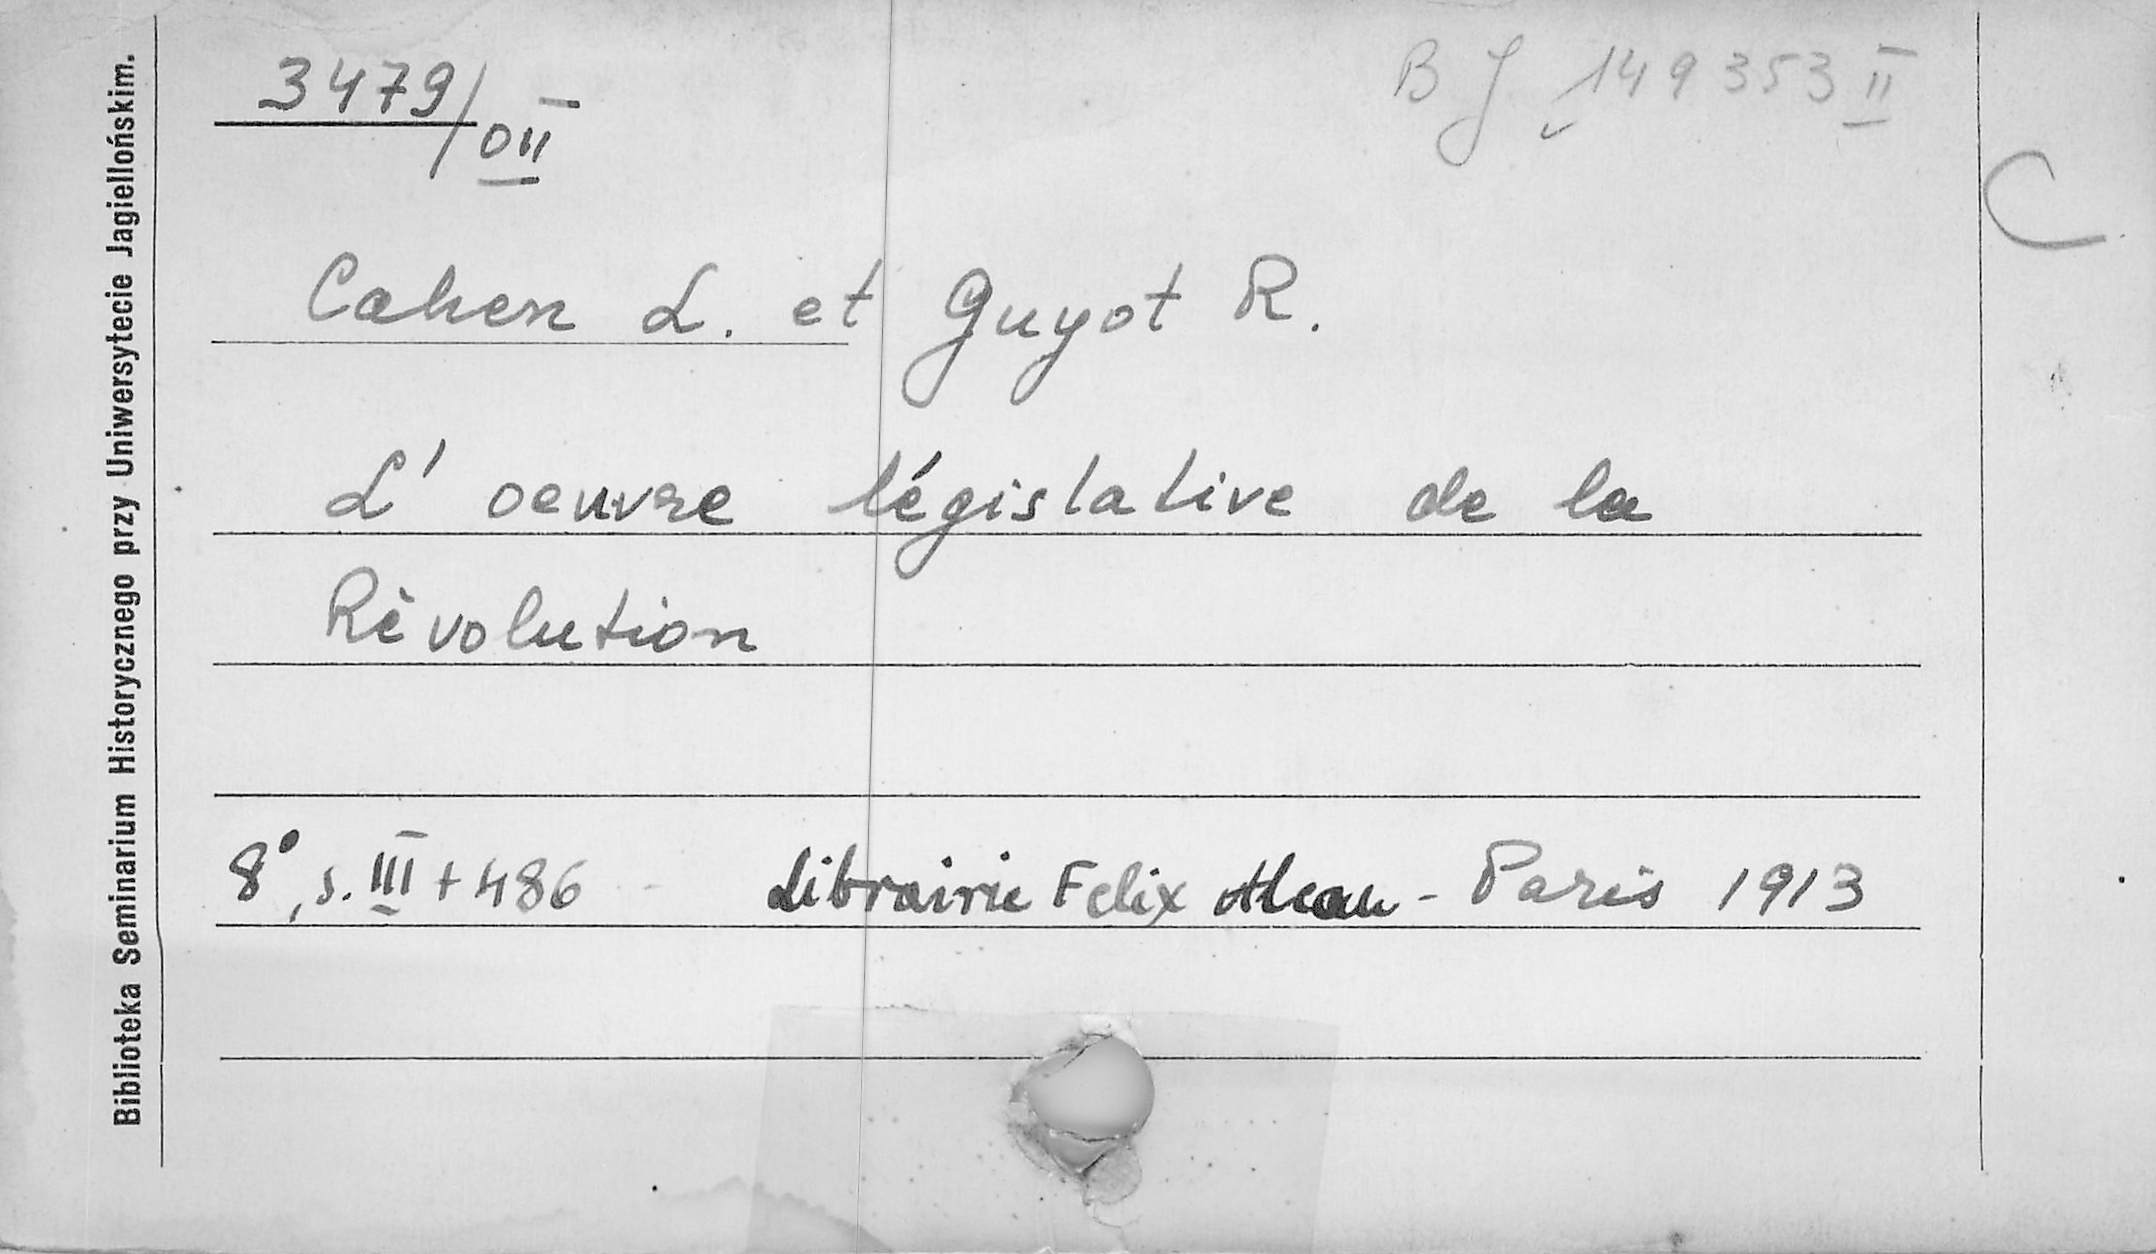 3479/OII
BJ 149353 II
C
Cahen L. et Guyot R.
L' oeuvre législative de la
Révolution
8°, s. III + 486 Librairie Felix Alcan - Paris 1913
Biblioteka Seminarium Historycznego przy Uniwersytecie Jagiellońskim.